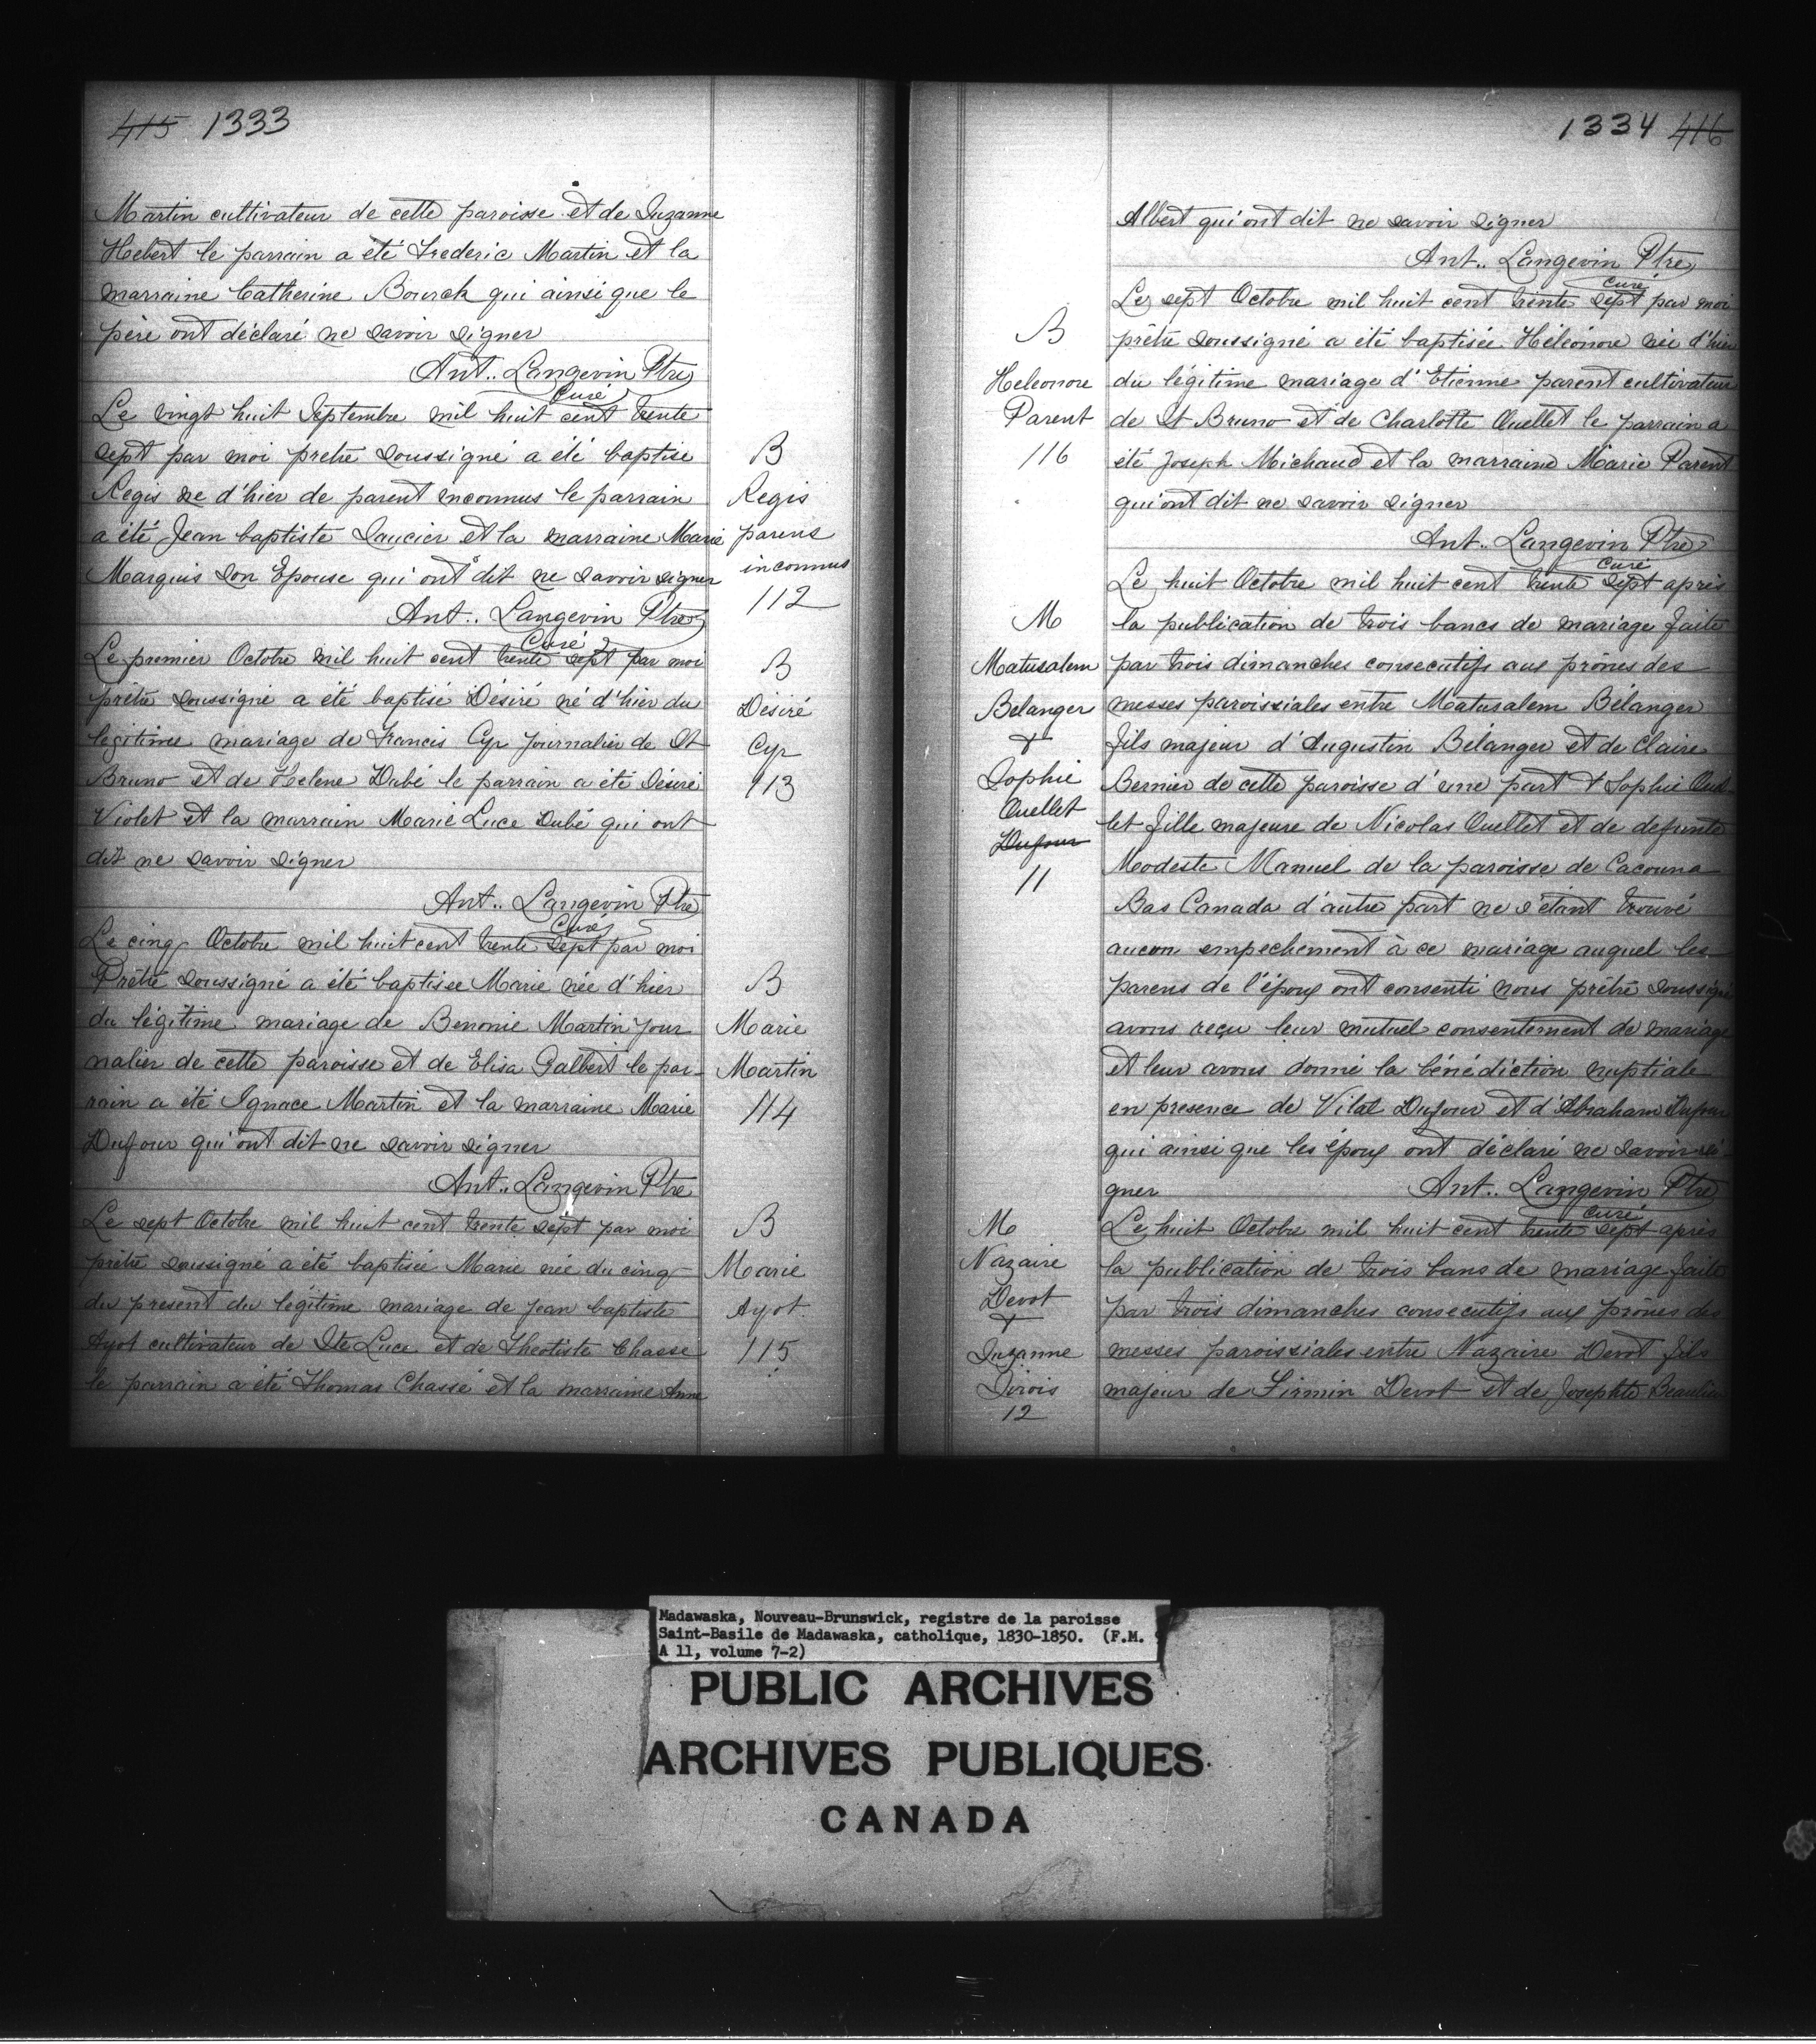 415 1333
Martin cultivateur de cette paroisse et de Suzanne
Hebert le parrain a été Frederic Martin et la
marraine Catherine Bourck qui ainsi que le
père ont déclaré ne savoir signer
Ant.. Langevin Ptre
Curé
Le vingt huit Septembre mil huit cent trente
sept par moi pretre soussigné a été baptise
Regis ne d'hier de parent inconnus le parrain
a été Jean baptiste Saucier et la marraine Marie
Marquis son Epouse qui ont dit ne savoir signer
Ant.. Langevin Ptre
Curé
B
Regis
parens
inconnus
112
Le premier Octobre mil huit cent trente sept par moi
prêtre soussigné a été baptisé Désiré né d'hier du
légitime mariage de Francis Cyr journalier de St
Bruno et de Helene Dubé le parrain a été Désiré
Violet et la marrain Marie Luce Dubé qui ont
dit ne savoir signer
Ant.. Langevin Ptre
Curé
B
Désiré
Cyr
113
Le cinq Octobre mil huit cent trente sept par moi
Prêtre soussigné a été baptisée Marie née d'hier
du légitime mariage de Benonie Martin jour
nalier de cette paroisse et de Elisa Galbert le par-
rain a été Ignace Martin et la marraine Marie
Dufour qui ont dit ne savoir signer
Ant.. Langevin Ptre
B
Marie
Martin
114
Le sept Octobre mil huit cent trente sept par moi
prêtre soussigné a été baptisée Marie née du cinq
du present du légitime mariage de Jean baptiste
Ayot cultivateur de Ste Luce et de Theotiste Chasse
le parrain a été Thomas Chassé et la marraine Anne
B
Marie
Ayot
115
1334 416
Albert qui ont dit ne savoir signer
Ant.. Langevin Ptre
Curé
Le sept Octobre mil huit cent trente sept par moi
prêtre soussigné a été baptisée Héléonore née d'hier
du légitime mariage d'Etienne parent cultivateur
de St Bruno et de Charlotte Ouellet le parrain a
été Joseph Michaud et la marraine Marie Parent
qui ont dit ne savoir signer
Ant.. Langevin Ptre
Curé
B
Heleonore
Parent
116
Le huit Octobre mil huit cent trente sept après
la publication de trois bancs de mariage faite
par trois dimanches consecutifs aux prônes des
messes paroissiales entre Matusalem Bélanger
fils majeur d'Augustin Bélanger et de Claire
Bernier de cette paroisse d'une part & Sophie Ouel-
let fille majeure de Nicolas Ouellet et de defunte
Modeste Manuel de la paroisse de Cacouna
Bas Canada d'autre part ne s'étant trouvé
aucun empechement à ce mariage auquel les
parens de l'époux ont consenti nous prêtre soussigné
avons reçu leur mutuel consentement de mariage
et leur avons donné la bénédiction nuptiale
en presence de Vital Dufour et d'Abraham Dufour
qui ainsi que les époux ont déclaré ne savoir si-
gner Ant.. Langevin Ptre
Curé
M
Matusalem
Bélanger
&
Sophie
Ouellet
Dufour
11
Le huit Octobre mil huit cent trente sept apres
la publication de trois bans de mariage faite
par trois dimanches consecutifs aux prônes des
messes paroissiales entre Nazaire Devot fils
majeur de Firmin Devot et de Josephte Beaulieu
M
Nazaire
Devot
&
Suzanne
Sirois
12
Madawaska, Nouveau-Brunswick, registre de la paroisse
Saint-Basile de Madawaska, catholique, 1830-1850. (F.M. 9
A 11, volume 7-2)
PUBLIC ARCHIVES
ARCHIVES PUBLIQUES
CANADA